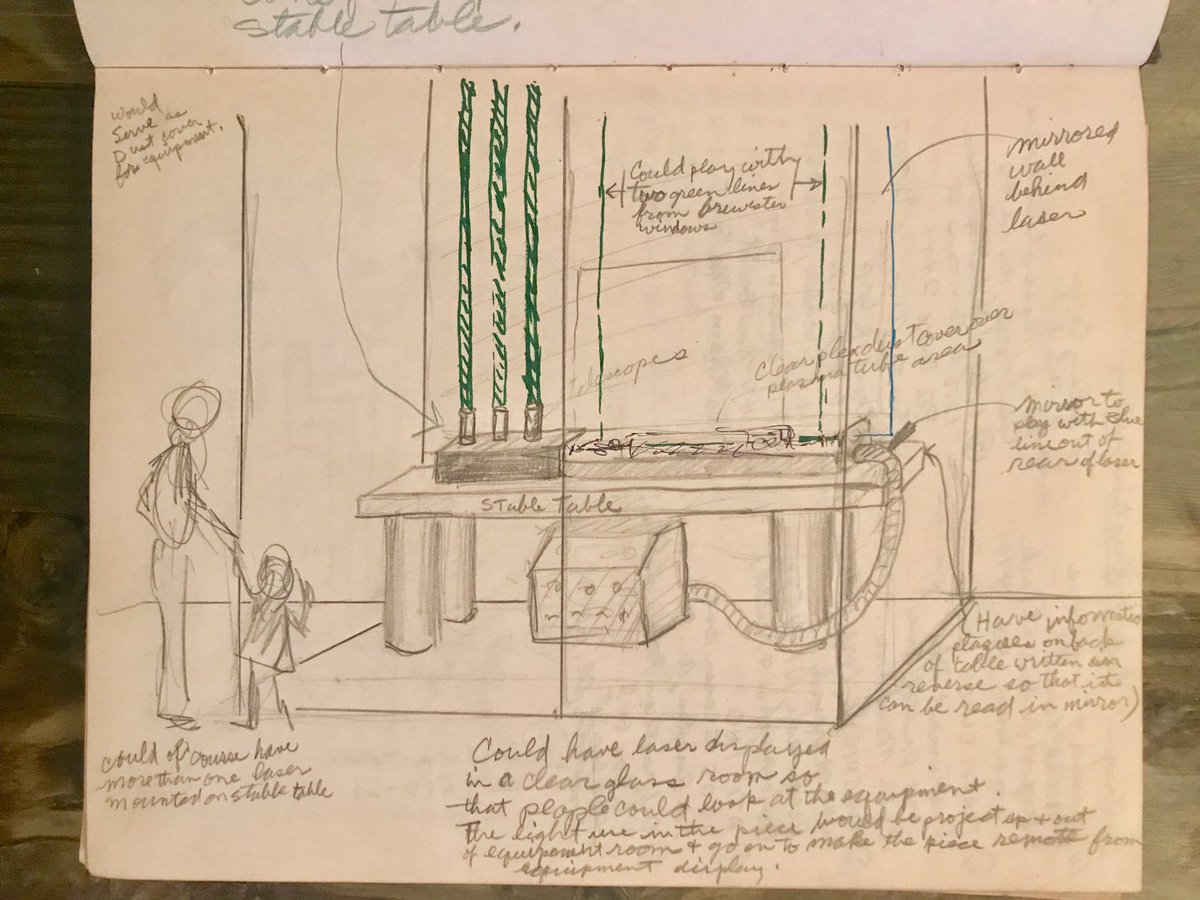 stable table.
would
Serve as
Dust cover
for equipment.
Could play with
two green lines
from brewster
windows
mirrored
wall
behind
laser
telescopes
clear plex dust cover over
plasma tube area
mirror to
play with blue
line out of
rear of laser
Stable Table
(Have informatio
plaques on back
of table written in
reverse so that it
can be read in mirror)
could of course have
more than one laser
mounted on stable table
Could have laser displayed
in a clear glass room so
that people could look at the equipment.
The light use in the piece would be project up + out
of equipment room + go on to make the piece remote from
equipment display.